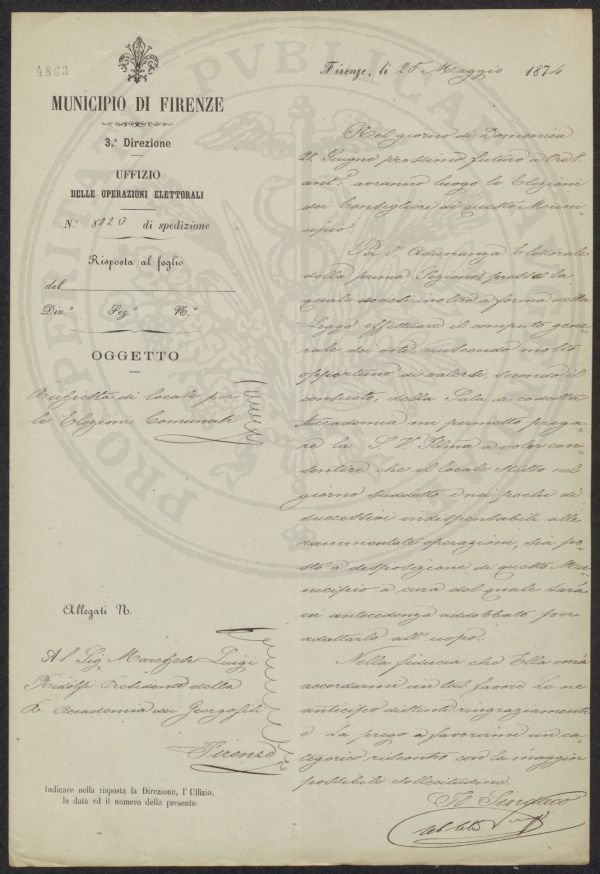 4863
MUNICIPIO DI FIRENZE
3.ª Direzione
UFFIZIO
DELLE OPERAZIONI ELETTORALI
N.º 8023 di spedizione
Risposta al foglio
del
Div.ª Sez.ª N.º
OGGETTO
Richiesta di locale per
le Elezioni Comunali
Allegati N.
Al Sig Marchese Luigi
Ridolfi Presidente della
R. Accademia dei Georgofili
Firenze
Indicare nella risposta la Direzione, l'Uffizio,
la data ed il numero della presente
Firenze, li 26 Maggio 1874
Nel giorno di Domenica
21 Giugno prossimo futuro a Ore
ant.e avranno luogo le Elezioni
dei Consiglieri di questo Muni-
cipio.
Per l'Adunanza Elettorale
della prima Sezione, presso la
quale dovesi inoltre a forma della
Legge effettuare il computo gene-
rale dei voti, riuscendo molto
opportuno di valersi, secondo il
consueto, della Sala di codesta
Accademia mi permetto prega-
re la S. V. Illma a voler con-
sentire che il locale stesso nel
giorno suddetto e nei pochi dì
successivi indispensabili alle
rammentate operazioni, sia po-
sto a disposizione di questo Mu-
nicipio a cura del quale sarà
in antecedenza addobbato per
adattarlo all'uopo.
Nella fiducia che Ella vorrà
accordarmi un tal favore Le ne
anticipo distinti ringraziamenti
e La prego a favorirmi un ca-
tegorico riscontro con la maggior
possibile sollecitudine.
Il Sindaco
PROSPERITATI PUBLICAE